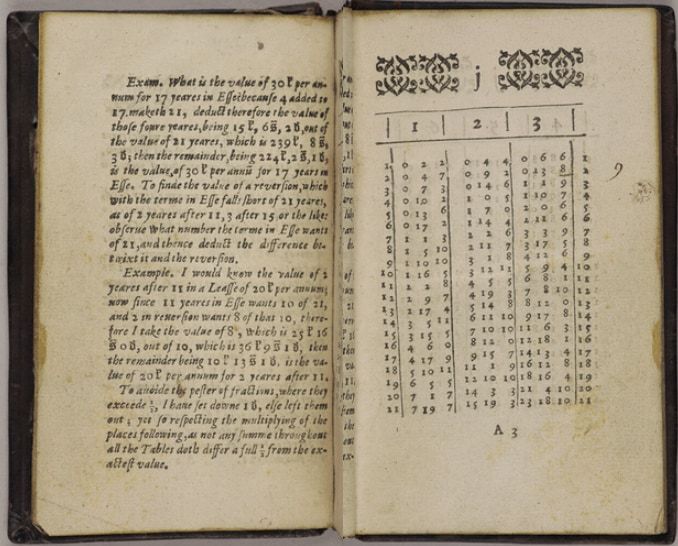 Exam. What is the value of 30 l̃ per an-
num for 17 yeares in Esse: because 4 added to
17. maketh 21, deduct therefore the value of
those foure yeares, being 15 l̃, 6 s̃, 2 d̃, out of
the value of 21 yeares, which is 239 l̃, 8 s̃,
3 d̃; then the remainder, being 224 l̃, 2 s̃, 1 d̃,
is the value, of 30 l̃ per annũ for 17 yeares in
Esse. To finde the value of a reversion, which
with the terme in Esse falls short of 21 yeares,
as of 2 yeares after 11, 3 after 15 or the like:
obserue what number the terme in Esse wants
of 21, and thence deduct the difference be-
twixt it and the reversion.
Example. I would know the value of 2
yeares after 11 in a Leasse of 20 l̃ per annum;
now since 11 yeares in Esse wants 10 of 21,
and 2 in reuersion wants 8 of that 10, there-
fore I take the value of 8, which is 25 l̃ 16
s̃ 0 d̃, out of 10, which is 36 l̃ 9 s̃ 1 d̃, then
the remainder being 10 l̃ 13 s̃ 1 d̃. is the va-
lue of 20 l̃ per annum for 2 yeares after 11.
To auoide the pester of fractions, where they
exceede ½, I haue set downe 1 d̃, else left them
out; yet so respecting the multiplying of the
places following, as not any summe throughout
all the Tables doth differ a full ½ from the ex-
actest value.
j
1 2 3
1 0 2 2 0 4 4 0 6 6 1
2 0 4 7 0 9 2 0 13 8 2
3 0 7 3 0 14 6 1 1 9 3
4 0 10 2 1 0 5 1 10 7 4
5 0 13 6 1 7 0 2 0 6 5
6 0 17 2 1 14 4 2 11 6 6
7 1 1 3 2 2 6 3 3 9 7
8 1 5 10 2 11 7 3 17 5 8
9 1 10 10 3 1 8 4 12 6 9
10 1 16 5 3 12 11 5 9 4 10
11 2 2 8 4 5 5 6 8 1 11
12 2 9 7 4 19 3 7 8 10 12
13 2 17 4 5 14 8 8 12 0 13
14 3 5 11 14
15 3 15 5 7 10 10 11 6 3 15
16 4 6 0 8 12 0 12 18 1 16
17 4 17 9 9 15 7 14 13 4 17
18 5 10 11 11 1 9 16 12 8 18
19 6 5 5 12 10 10 18 16 4 19
20 7 1 7 14 3 3 21 4 10 20
21 7 19 7 15 19 3 23 18 10 21
9
A 3